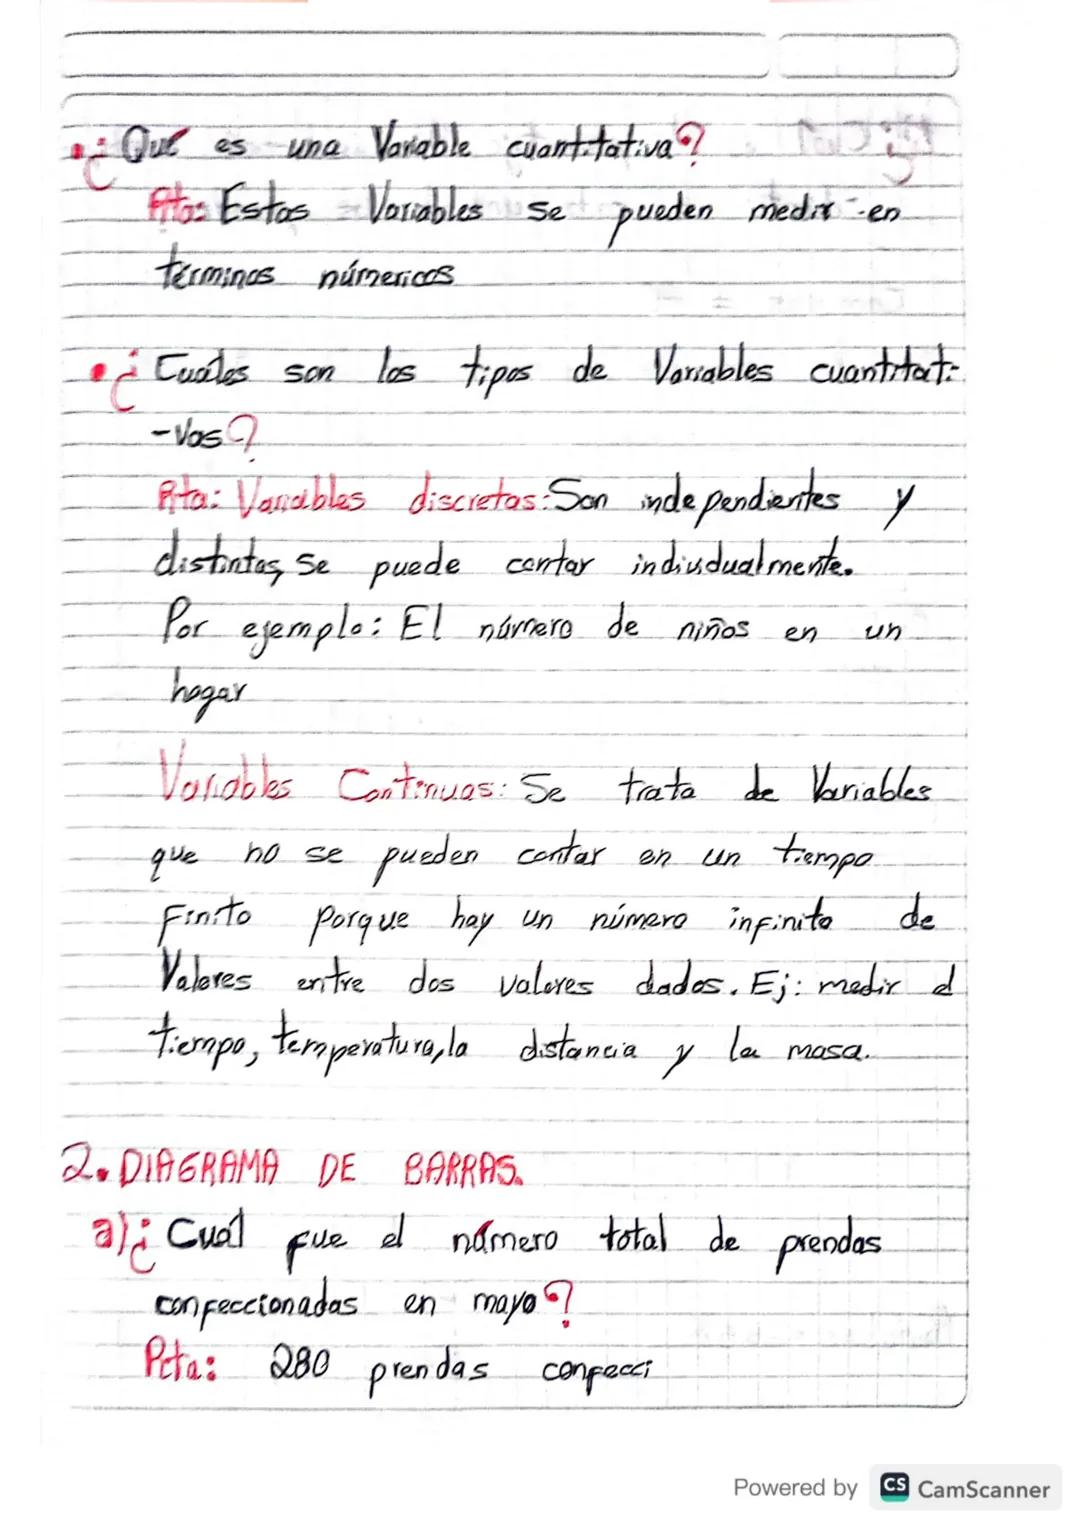 • ¿Qué es una Variable cuantitativa?
Rta: Estas Variables se pueden medir en
términos númericos
• ¿Cuáles son los tipos de Variables cuantitati-
-vas?
Rta: Variables discretas: Son independientes y
distintas, se puede contar individualmente.
Por ejemplo: El número de niños en un
hogar
Variables Continuas: Se trata de Variables
que no se pueden contar en un tiempo
Finito porque hay un número infinito de
Valores entre dos valores dados. Ej: medir el
tiempo, temperatura, la distancia y la masa.
2. DIAGRAMA DE BARRAS.
a) ¿Cuál fue el número total de prendas
confeccionadas en mayo?
Rta: 280 prendas confecci
Powered by CS CamScanner